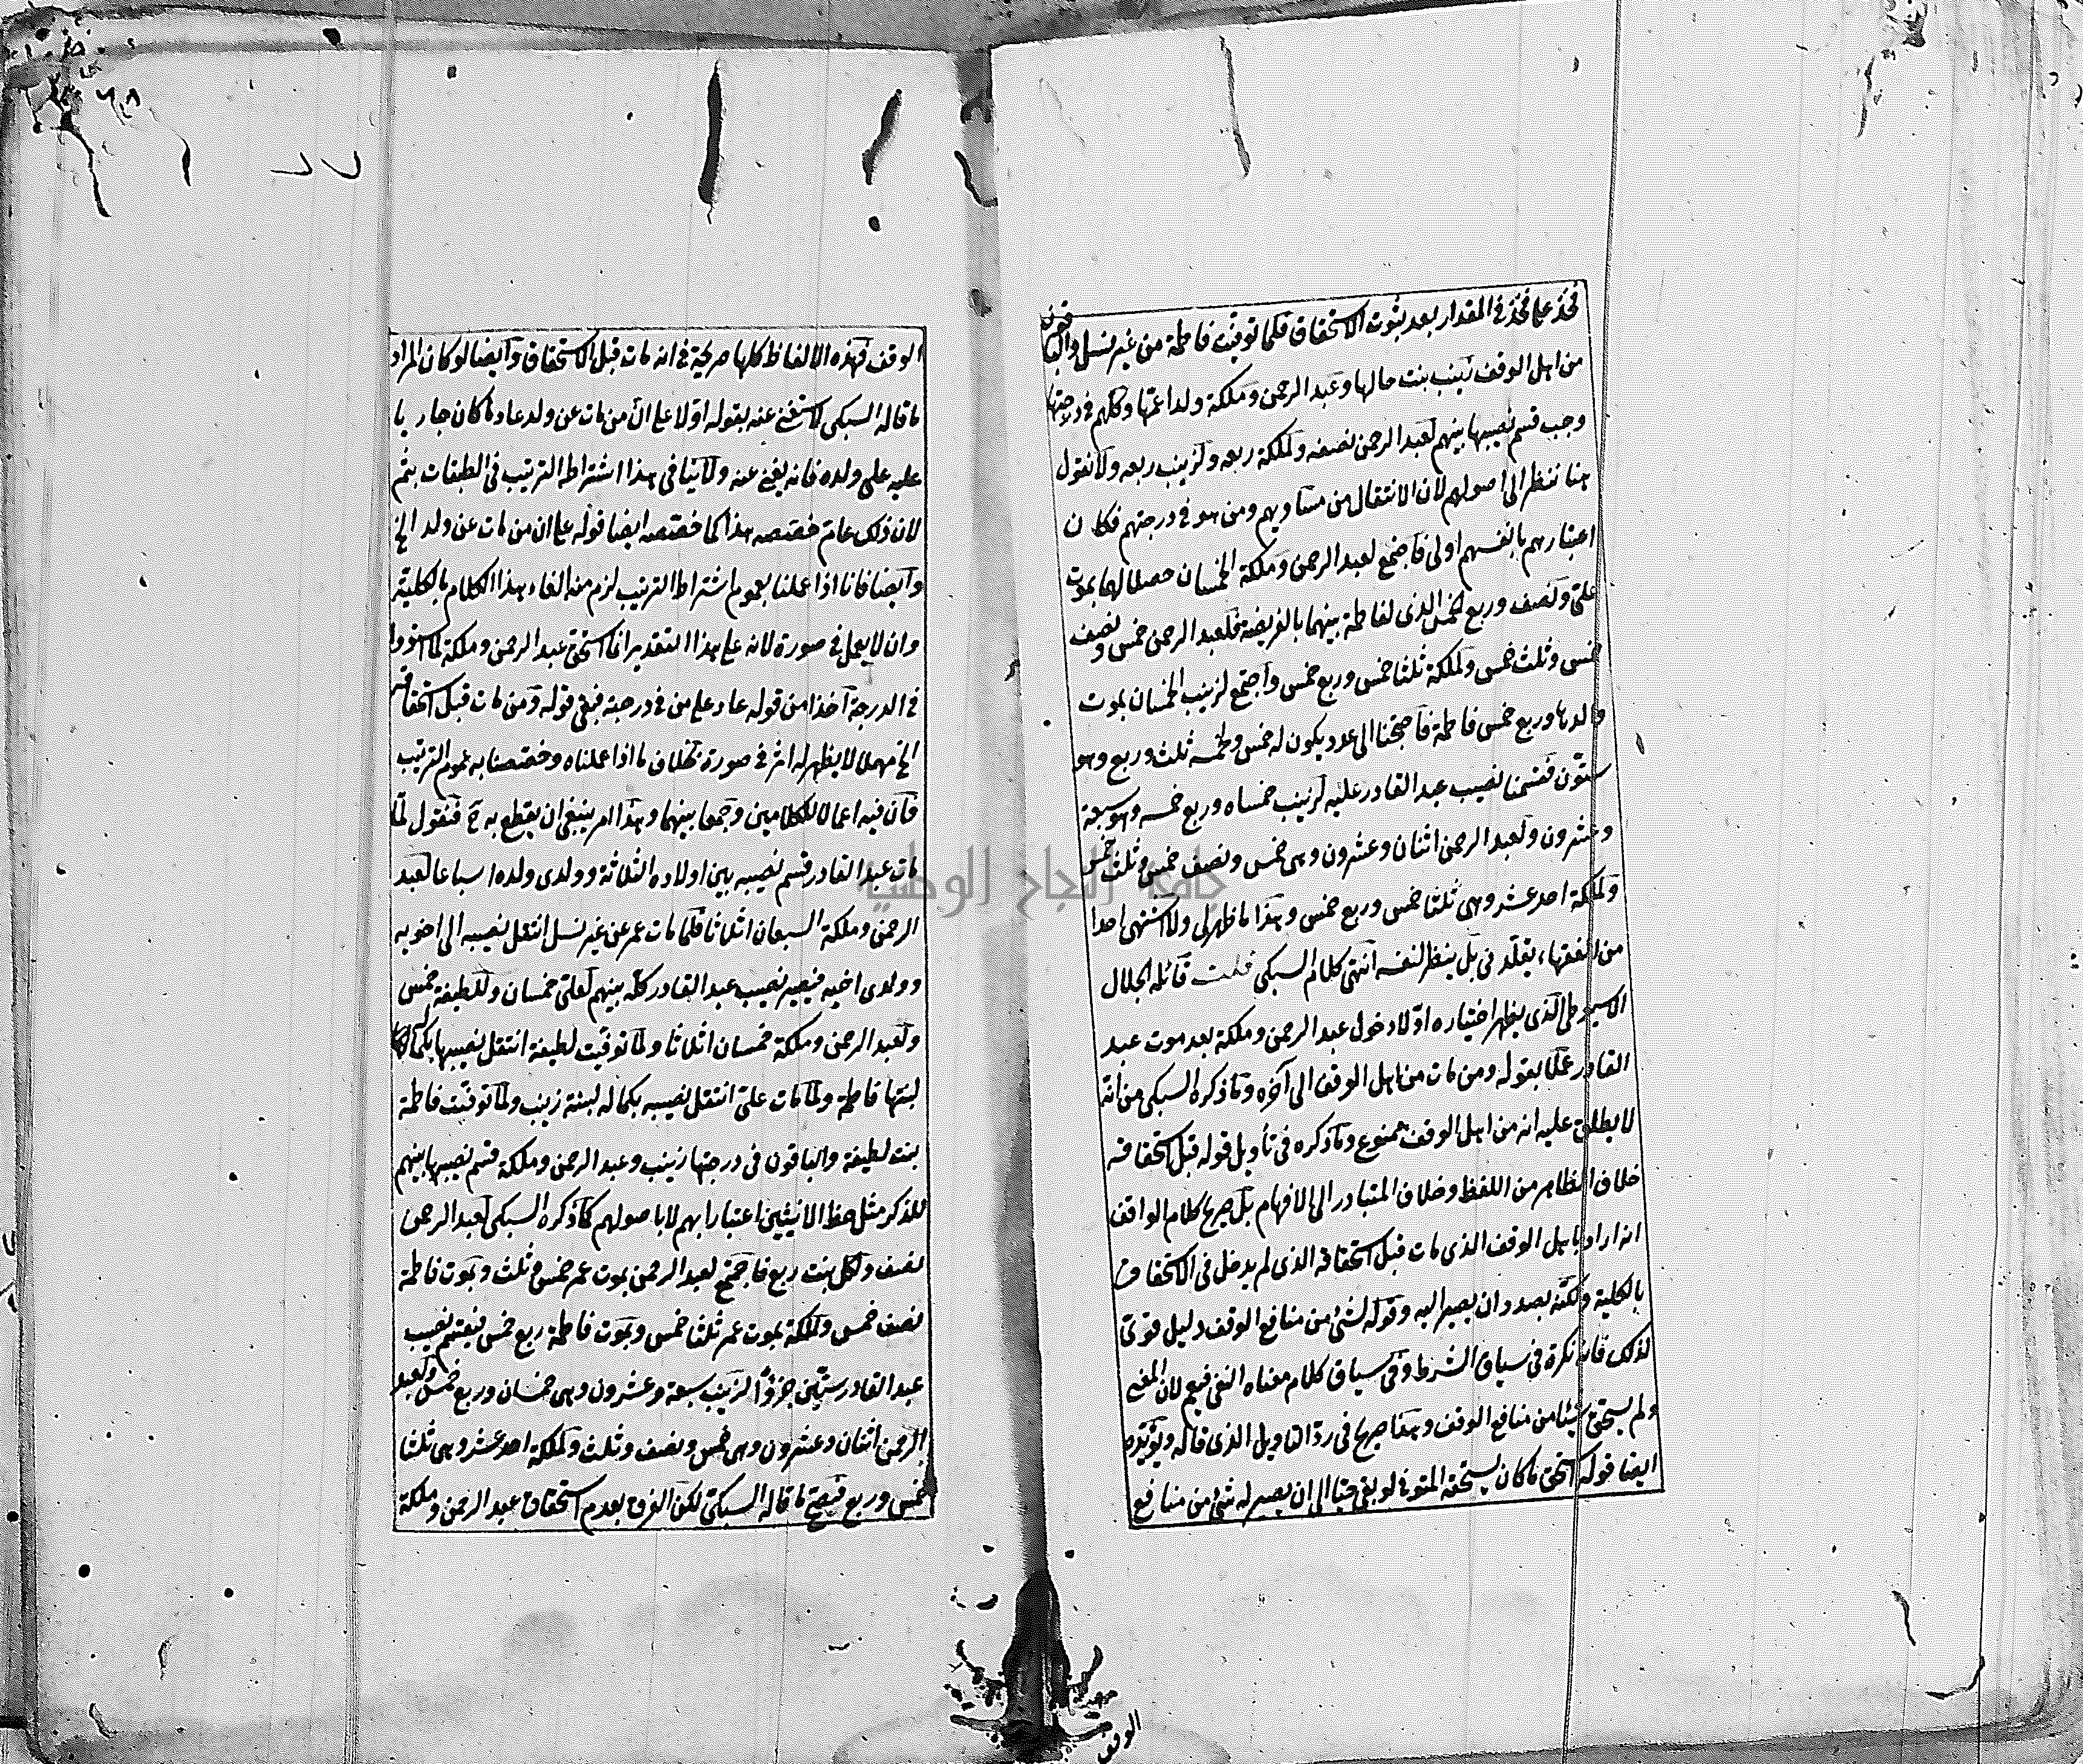 فخذ على فخذ في المقدار بعد ثبوت الاستحقاق فلما توفيت فاطمة من غير نسل والباقون
من اهل الوقف زينب بنت خالها وعبد الرحمن وملكة ولدا عمتها وكلهم في درجتها
وجب قسم نصيبها بينهم لعبد الرحمن نصفه ولملكة ربعه ولزينب ربعه ولا نقول
هنا ننظر الى اصولهم لان الانتقال من مساويهم ومن هو في درجتهم فكان
اعتبارهم بانفسهم اولى فاجتمع لعبد الرحمن وملكة الخمسان حصلا لهما بموت
علي ونصف وربع الخمس الذي لفاطمة بينهما بالفريضة فلعبد الرحمن خمس ونصف
خمس وثلث خمس ولملكة ثلثا خمس وربع خمس واجتمع لزينب الخمسان بموت
والدها وربع خمس فاطمة فاحتجنا الى عدد يكون له خمس ولخمسه ثلث وربع وهو
ستون فقسمنا نصيب عبد القادر عليه لزينب خمساه وربع خمسه وهو سبعة
وعشرون ولعبد الرحمن اثنان وعشرون وهي خمس ونصف خمس وثلث خمس
ولملكة احد عشر وهي ثلثا خمس وربع خمس وهذا ما ظهر لي ولا اشتهي احدا
من الفقهاء يقلدني بل ينظر لنفسه انتهى كلام السبكي قلت قائله الجلال
الاسيوطي الذي يظهر اختياره اولا دخول عبد الرحمن وملكة بعد موت عبد
القادر عملا بقوله ومن مات من اهل الوقف الى آخره وما ذكره السبكي من انه
لا يطلق عليه انه من اهل الوقف ممنوع وما ذكره في تأويل قوله قبل استحقاقه
خلاف الظاهر من اللفظ وخلاف المتبادر الى الافهام بل صريح كلام الواقف
انه اراد باهل الوقف الذي مات قبل استحقاقه الذي لم يدخل في الاستحقاق
بالكلية ولكنه بصدد ان يصير اليه وقوله لشئ من منافع الوقف دليل قوي
لذلك فانه نكرة في سياق الشرط وفي سياق كلام معناه النفي فيعم لان المعنى
ولم يستحق شيئا من منافع الوقف وهذا صريح في رد التاويل الذي قاله ويؤيده
ايضا قوله استحق ما كان يستحقه المتوفى لو بقي حيا الى ان يصير له شئ من منافع
الوقف
الوقف فهذه الالفاظ كلها صريحة في انه مات قبل الاستحقاق وايضا لو كان المراد
ما قاله السبكي لاستغنى عنه بقوله اولا على ان من مات عن ولد عاد ما كان جاريا
عليه على ولده فانه يغني عنه ولا ينافي هذا اشتراط الترتيب في الطبقات بثم
لان ذلك عام خصصه هذا كما خصصه ايضا قوله على ان من مات عن ولد الخ
وايضا فانا اذا عملنا بعموم اشتراط الترتيب لزم منه الغاء هذا الكلام بالكلية
وان لا يعمل في صورة لانه على هذا التقدير انما استحق عبد الرحمن وملكة لما استووا
في الدرجة آخذا من قوله عاد على من في درجته فبقي قوله ومن مات قبل استحقاقه
الخ مهملا لا يظهر له اثر في صورة بخلاف ما اذا عملناه وخصصنا به عموم الترتيب
فان فيه اعمالا للكلامين وجمعا بينهما وهذا امر ينبغي ان يقطع به ح فنقول لما
مات عبد القادر قسم نصيبه بين اولاده الثلاثة وولدي ولده اسباعا لعبد
الرحمن وملكة السبعان اثلاثا فلما مات عمر عن غير نسل انتقل نصيبه الى اخويه
وولدي اخيه فيصير نصيب عبد القادر كله بينهم لعلي خمسان وللطيفة خمس
ولعبد الرحمن وملكة خمسان اثلاثا ولما توفيت لطيفة انتقل نصيبها بكماله
لبنتها فاطمة ولما مات علي انتقل نصيبه بكماله لبنته زينب ولما توفيت فاطمة
بنت لطيفة والباقون في درجتها زينب وعبد الرحمن وملكة قسم نصيبها بينهم
للذكر مثل حظ الانثيين اعتبارا بهم لا باصولهم كما ذكره السبكي لعبد الرحمن
نصف ولكل بنت ربع فاجتمع لعبد الرحمن بموت عمر خمس وثلث وبموت فاطمة
نصف خمس ولملكة بموت عمر ثلثا خمس وبموت فاطمة ربع خمس فيقسم نصيب
عبد القادر ستين جزؤا لزينب سبعة وعشرون وهي خمسان وربع خمس ولعبد
الرحمن اثنان وعشرون وهي خمس ونصف وثلث ولملكة احد عشر وهي ثلثا
خمس وربع فصح ما قاله السبكي لكن الفرق بعدم استحقاق عبد الرحمن وملكة
جامعة النجاح الوطنية